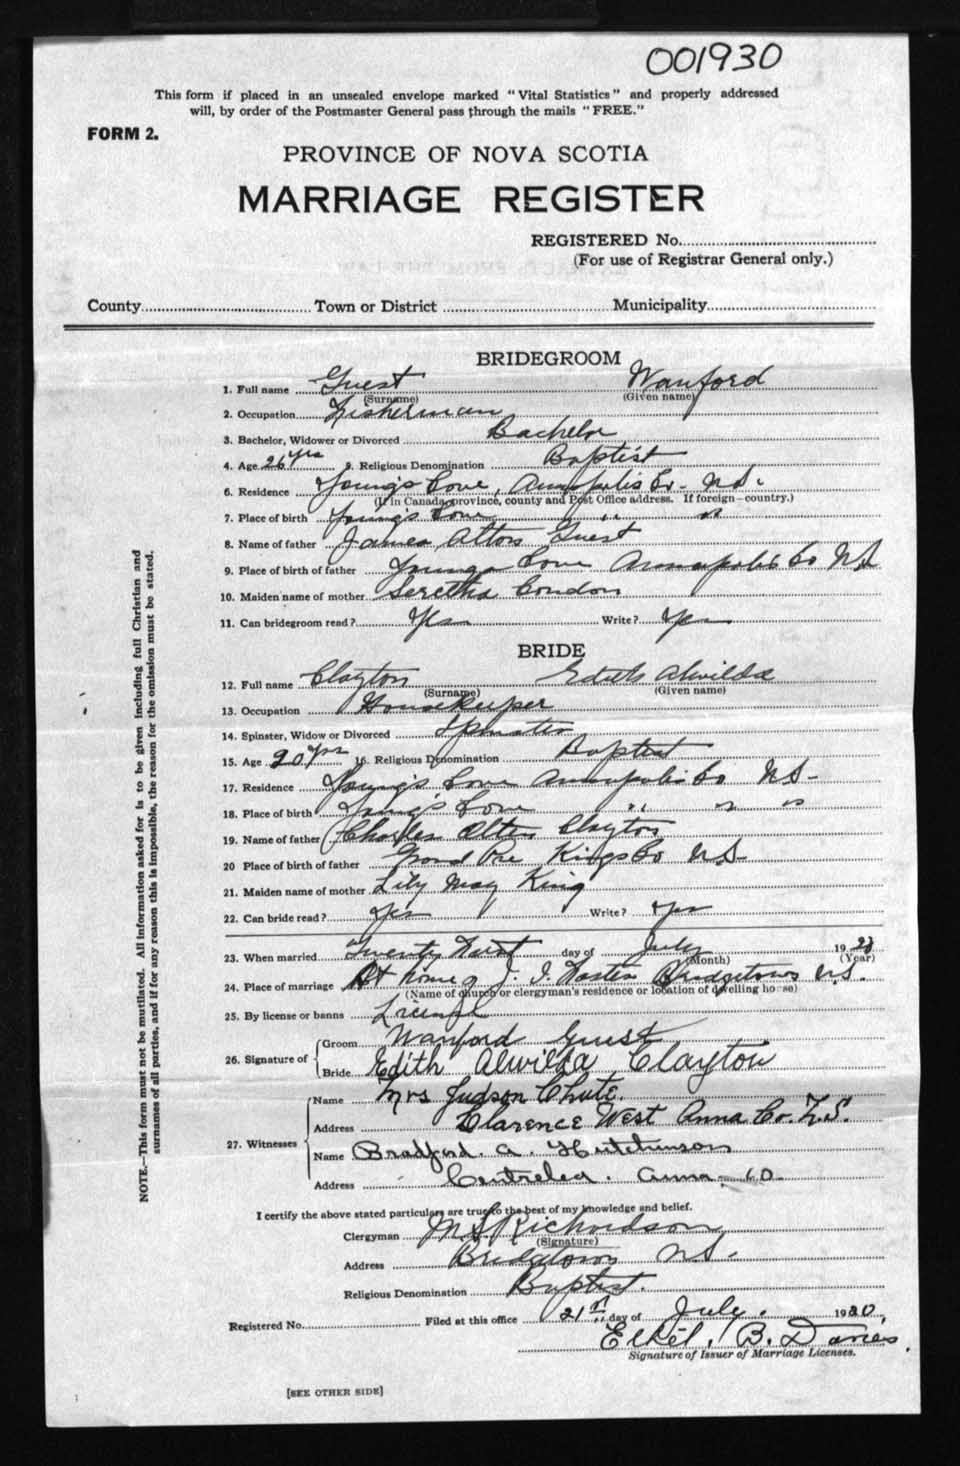 001930
This form if placed in an unsealed envelope marked "Vital Statistics" and properly addressed
will, by order of the Postmaster General pass through the mails "FREE."
FORM 2.
PROVINCE OF NOVA SCOTIA
MARRIAGE REGISTER
REGISTERED No.
(For use of Registrar General only.)
County Town or District Municipality
BRIDEGROOM
1. Full name Guest Wanford
(Surname) (Given name)
2. Occupation Fisherman
3. Bachelor, Widower or Divorced Bachelor
4. Age 26 yrs 5. Religious Denomination Baptist
6. Residence Young's Cove, Annapolis Co. N.S.
(If in Canada, province, county and Post Office address. If foreign—country.)
7. Place of birth Young's Cove " "
8. Name of father James Guest
9. Place of birth of father Youngs Cove Annapolis Co NS
10. Maiden name of mother Seretha Condon
11. Can bridegroom read? Yes Write? Yes
BRIDE
12. Full name Clayton Edith Alwilda
(Surname) (Given name)
13. Occupation Housekeeper
14. Spinster, Widow or Divorced Spinster
15. Age 20 yrs 16. Religious Denomination Baptist
17. Residence Young's Cove Annapolis Co NS
18. Place of birth Young's Cove " " "
19. Name of father Charles Clayton
20 Place of birth of father Grand Pre Kings Co NS
21. Maiden name of mother Lily May King
22. Can bride read? Yes Write? Yes
23. When married Twenty First day of July 19
(Month) (Year)
24. Place of marriage At home of J. Bridgetown N.S.
(Name of church or clergyman's residence or location of dwelling house)
25. By license or banns License
26. Signature of Groom Wanford Guest
Bride Edith Alwilda Clayton
27. Witnesses Name Mrs Judson Chute.
Address Clarence West Anna Co. N.S.
Name Bradford. A. Hutchinson
Address Centrelea. Anna. Co.
I certify the above stated particulars are true to the best of my knowledge and belief.
Clergyman M S Richardson
(Signature)
Address Bridgetown NS.
Religious Denomination Baptist.
Registered No. Filed at this office 21st day of July. 1920.
Ethel. B. Davies.
Signature of Issuer of Marriage Licenses.
[SEE OTHER SIDE]
NOTE.—This form must not be mutilated. All information asked for is to be given including full Christian and
surnames of all parties, and if for any reason this is impossible, the reason for the omission must be stated.